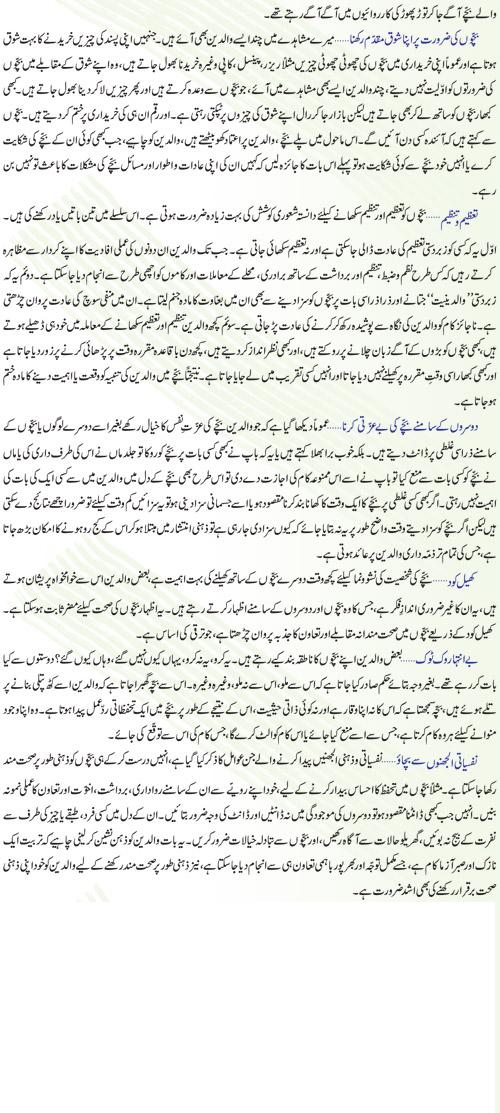 والے بچے آگے جا کر توڑ پھوڑ کی کارروائیوں میں آگے آگے رہتے تھے۔
بچوں کی ضرورت پر اپنا شوق مقدّم رکھنا......میرے مشاہدے میں چند ایسے والدین بھی آئے ہیں۔ جنہیں اپنی پسند کی چیزیں خریدنے کا بہت شوق
ہوتا ہے اور عموماً اپنی خریداری میں بچوں کی چھوٹی چھوٹی چیزیں مثلاً ربڑ، پینسل، کاپی وغیرہ خریدنا بھول جاتے ہیں، وہ اپنے شوق کے مقابلے میں بچوں
کی ضرورتوں کو اوّلیت نہیں دیتے، چند والدین ایسے بھی مشاہدے میں آئے، جو بچوں سے وعدہ کرتے ہیں اور پھر چیزیں لا کر دینا بھول جاتے ہیں۔ کبھی
کبھار بچوں کو ساتھ لے کر بھی جاتے ہیں لیکن بازار جا کر رال اپنے شوق کی چیزوں پر ٹپکتی رہتی ہے۔ اور رقم ان ہی کی خریداری پر ختم کر دیتے ہیں۔ بچوں
سے کہتے ہیں کہ آئندہ کسی دن آئیں گے۔ اس ماحول میں پلے بچے، والدین پر اعتماد کھو بیٹھتے ہیں، والدین کو چاہیے، جب بھی کوئی ان کے بچے کی شکایت
کرے یا انہیں خود بچے سے کوئی شکایت ہو تو پہلے اس بات کا جائزہ لیں کہ کہیں ان کی اپنی عادات و اطوار اور مسائل بچے کی مشکلات کا باعث تو نہیں بن
رہے۔
تعظیم و تنظیم......بچوں کو تعظیم اور تنظیم سکھانے کیلئے دانستہ شعوری کوشش کی بہت زیادہ ضرورت ہوتی ہے۔ اس سلسلے میں تین باتیں یاد رکھنے کی ہیں۔
اوّل یہ کہ کسی کو زبردستی تعظیم کی عادت ڈالی جا سکتی ہے اور نہ تعظیم سکھائی جاتی ہے۔ جب تک والدین ان دونوں کی عملی افادیت کا اپنے کردار سے مظاہرہ
کرتے رہیں کہ کس طرح نظم و ضبط، تنظیم اور برداشت کے ساتھ برادری، محلے کے معاملات اور کاموں کو اچھی طرح سے انجام دیا جا سکتا ہے۔ دوئم یہ کہ
زبردستی ”والدینیت“ جتانے اور ذرا ذرا سی بات پر بچوں کو سزا دینے سے بھی ان میں بغاوت کا مادہ جنم لیتا ہے۔ ان میں منفی سوچ کی عادت پروان چڑھتی
ہے۔ ناجائز کام کو والدین کی نگاہ سے پوشیدہ رکھ کر کرنے کی عادت پڑ جاتی ہے۔ سوئم کچھ والدین تنظیم اور تعظیم سکھانے کے معاملہ میں خود ہی ڈھیلے ہوتے
ہیں، کبھی بچوں کو بڑوں کے آگے زبان چلانے پر روکتے ہیں، اور کبھی نظر انداز کر دیتے ہیں، کچھ دن باقاعدہ مقررہ وقت پر پڑھائی کرنے پر زور دیا جاتا ہے
اور کبھی کبھار اسی وقتِ مقررہ پر کھیلنے نہیں دیا جاتا اور انہیں کسی تقریب میں لے جایا جاتا ہے۔ نتیجتاً بچے میں والدین کی تنبیہ کو وقعت یا اہمیت دینے کا مادہ ختم
ہو جاتا ہے۔
دوسروں کے سامنے بچے کی بے عزتی کرنا......عموماً دیکھا گیا ہے کہ جو والدین بچے کی عزتِ نفس کا خیال رکھے بغیر اسے دوسرے لوگوں یا بچوں کے
سامنے ذرا سی غلطی پر ڈانٹ دیتے ہیں۔ بلکہ خوب برا بھلا کہتے ہیں یا یہ کہ باپ نے کبھی کسی بات پر بچے کو روکا تو جلد ماں نے اس کی طرف داری کی یا ماں
نے بچے کو کسی بات سے منع کیا تو باپ نے اسے اس ممنوعہ کام کی اجازت دے دی تو اس طرح بھی بچے کے دل میں والدین میں سے کسی ایک کی بات کی
اہمیت نہیں رہتی۔ اگر کبھی کسی غلطی پر بچے کا ایک وقت کا کھانا بند کرنا مقصود ہو یا اسے جسمانی سزا دینی ہو تو یہ سزائیں کم وقت کیلئے تو ضرور اچھے نتائج دے سکتی
ہیں لیکن اگر بچے کو سزا دیتے وقت واضح طور پر یہ نہ بتایا جائے کہ کیوں سزا دی جا رہی ہے تو ذہنی انتشار میں مبتلا ہو کر اس کے کج رو ہونے کا امکان بڑھ جاتا
ہے، جس کی تمام تر ذمّہ داری والدین پر عائد ہوتی ہے۔
کھیل کود......بچے کی شخصیت کی نشوونما کیلئے کچھ وقت دوسرے بچوں کے ساتھ کھیلنے کی بہت اہمیت ہے، بعض والدین اس سے خوامخواہ پریشان ہوتے
ہیں، یہ ان کا غیر ضروری اندازِ فکر ہے، جس کا وہ بچوں اور دوسروں کے سامنے اظہار کرتے رہتے ہیں۔ یہ اظہار بچوں کی صحت کیلئے مضر ثابت ہو سکتا ہے۔
کھیل کود کے ذریعے بچوں میں صحت مندانہ مقابلے اور تعاون کا جذبہ پروان چڑھتا ہے، جو ترقی کی اساس ہے۔
بے انتہا روک ٹوک......بعض والدین اپنے بچوں کا ناطقہ بند کیے رہتے ہیں۔ یہ کرو، یہ نہ کرو، یہاں کیوں نہیں گئے، وہاں کیوں گئے؟ دوستوں سے کیا
بات کر رہے تھے۔ بغیر وجہ بتائے حکم صادر کیا جاتا ہے کہ اس سے ملو، اس سے نہ ملو، وغیرہ وغیرہ۔ اس سے بچہ گھبرا جاتا ہے کہ والدین اسے کٹھ پتلی بنانے پر
تلے ہوئے ہیں، بچہ سمجھتا ہے کہ اس کا نہ اپنا وقار ہے اور نہ کوئی ذاتی حیثیت، اس کے نتیجے کے طور پر بچے میں ایک تحفظاتی ردِ عمل پیدا ہوتا ہے۔ وہ اپنا وجود
منوانے کیلئے ہر وہ کام کرتا ہے، جس سے اسے منع کیا جائے یا اس کام کو الٹ کرے گا، جس کام کی اس سے توقع کی جائے۔
نفسیاتی الجھنوں سے بچاؤ......نفسیاتی و ذہنی الجھنیں پیدا کرنے والے جن عوامل کا ذکر کیا گیا ہے، انہیں درست کر کے ہی بچوں کو ذہنی طور پر صحت مند
رکھا جا سکتا ہے۔ مثلاً بچوں میں تحفظ کا احساس بیدار کرنے کے لیے، خود اپنے رویے سے ان کے سامنے رواداری، برداشت، اخوّت اور تعاون کا عملی نمونہ
بنیں۔ انہیں جب بھی ڈانٹنا مقصود ہو تو دوسروں کی موجودگی میں نہ ڈانٹیں اور ڈانٹ کی وجہ ضرور بتائیں۔ ان کے دل میں کسی فرد، طبقے یا چیز کی طرف سے
نفرت کے بیج نہ بوئیں، گھریلو حالات سے آگاہ رکھیں، اور بچوں سے تبادلہ خیالات ضرور کریں۔ یہ بات والدین کو ذہن نشین کر لینی چاہیے کہ تربیت ایک
نازک اور صبر آزما کام ہے، جسے مکمل توجّہ اور بھرپور باہمی تعاون ہی سے انجام دیا جا سکتا ہے، نیز ذہنی طور پر صحت مند رکھنے کے لیے والدین کو خود اپنی ذہنی
صحت برقرار رکھنے کی بھی اشد ضرورت ہے۔